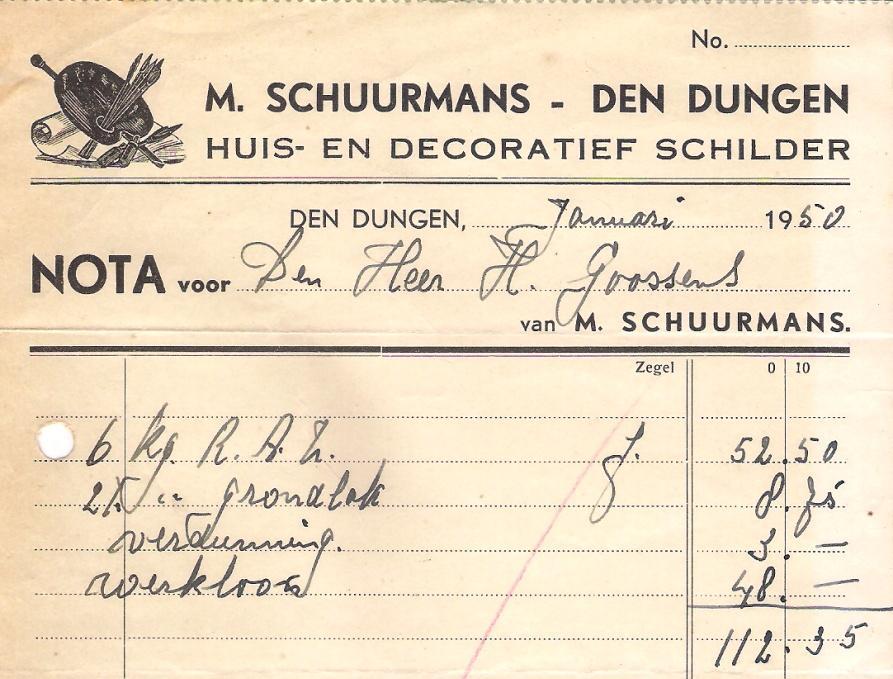 No.
M. SCHUURMANS - DEN DUNGEN
HUIS- EN DECORATIEF SCHILDER
DEN DUNGEN, Januari 1950
NOTA voor Den Heer H. Goossens
van M. SCHUURMANS.
Zegel 0 10
6 kg. R. A. Z. f. 52.50
2½ " grondlak 8.75
verdunning. 3. —
werkloon 48. —
112.35